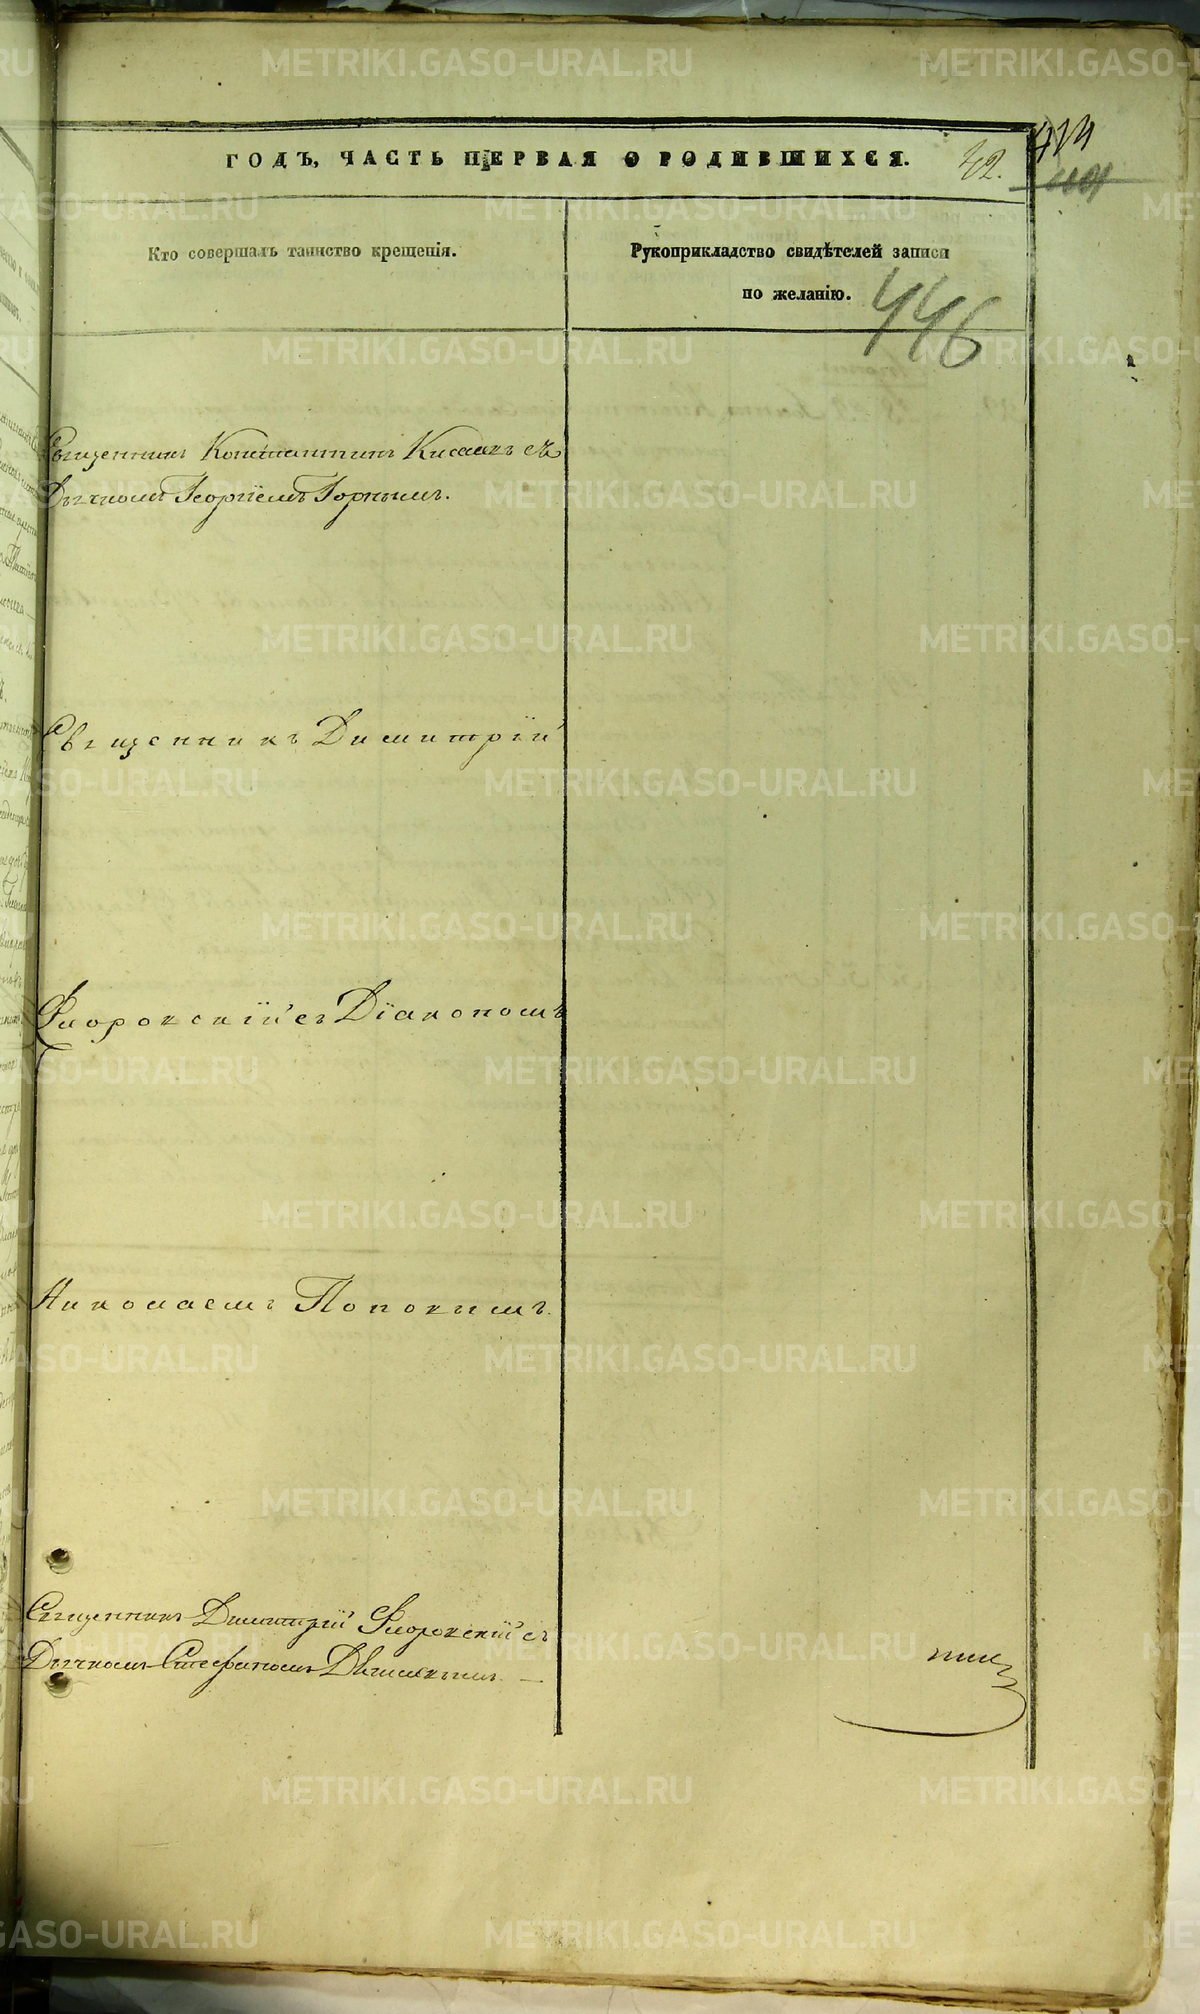 ГОДЪ, ЧАСТЬ ПЕРВАЯ О РОДИВШИХСЯ.
42.
414
Кто совершалъ таинство крещенія.
Рукоприкладство свидѣтелей записи
по желанію.
446
Священникъ Константинъ съ
Дьячкомъ Георгіемъ Горнымъ.
Священникъ Димитрій
Флоровскій съ Діакономъ
Николаемъ Поповымъ.
Священникъ Димитрій Флоровскій съ
Дьячкомъ Стефаномъ
METRIKI.GASO-URAL.RU